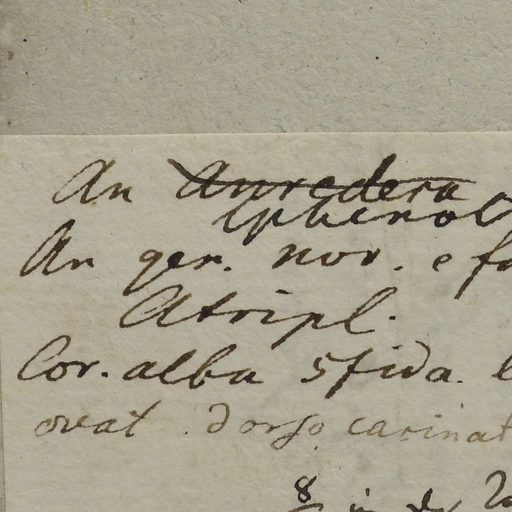 An Anredera
An gen. nov. e
Atripl.
Cor. alba 5fida.
ovat dorso carinat
8